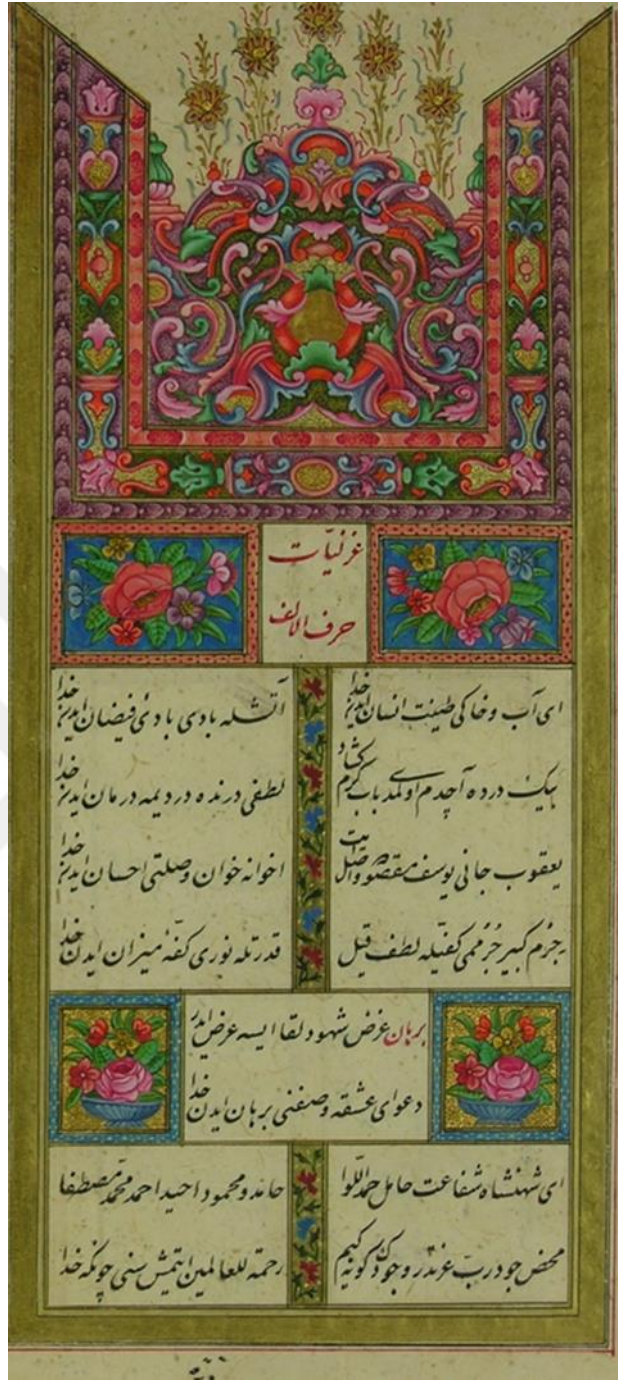 غزلیّات
حرف الالف
ای آب و خاکی طینت انسان ایدن خدا
آتشله بادی بادئ فیضان ایدن خدا
بیک درده آچدم اولمدی باب کرم کشاد
لطفی درنده دردیمه درمان ایدن خدا
یعقوب جانی یوسف مقصوده واصل ایت
اخوانه خوان وصلتی احسان ایدن خدا
جرم کبیر جرممی کفّیله لطف قیل
قدرتله نوری کفّهٔ میزان ایدن خدا
برهان غرض شهود لقا ایسه عرض ایدر
دعوای عشقه وصفنی برهان ایدن خدا
ای شهنشاه شفاعت حامل حمد اللّوا
حامد و محمود احید احمد محمّد مصطفا
محض جود ربّ عزتدر وجودک کویه کیم
رحمة للعالمین ایتمش سنی چونکه خدا